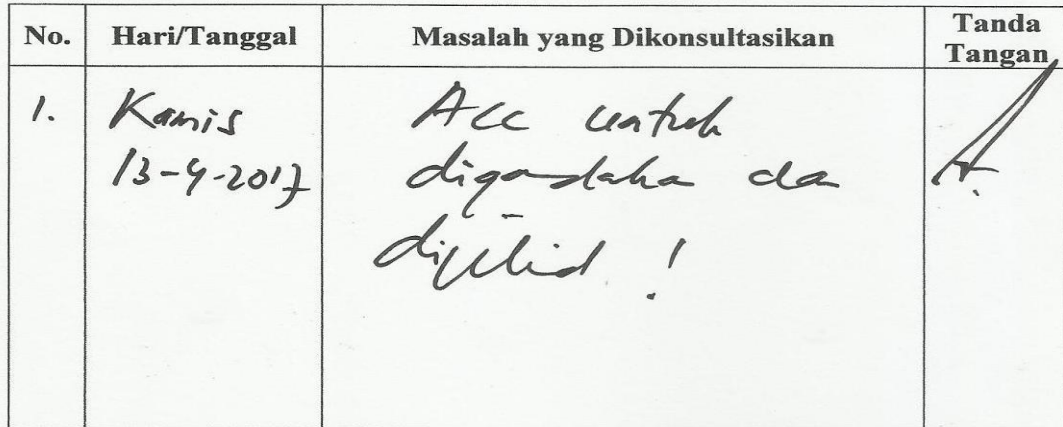 No. Hari/Tanggal Masalah yang Dikonsultasikan Tanda Tangan
1. Kamis Acc untuk
13-4-2017 digandaka da
dijilid !